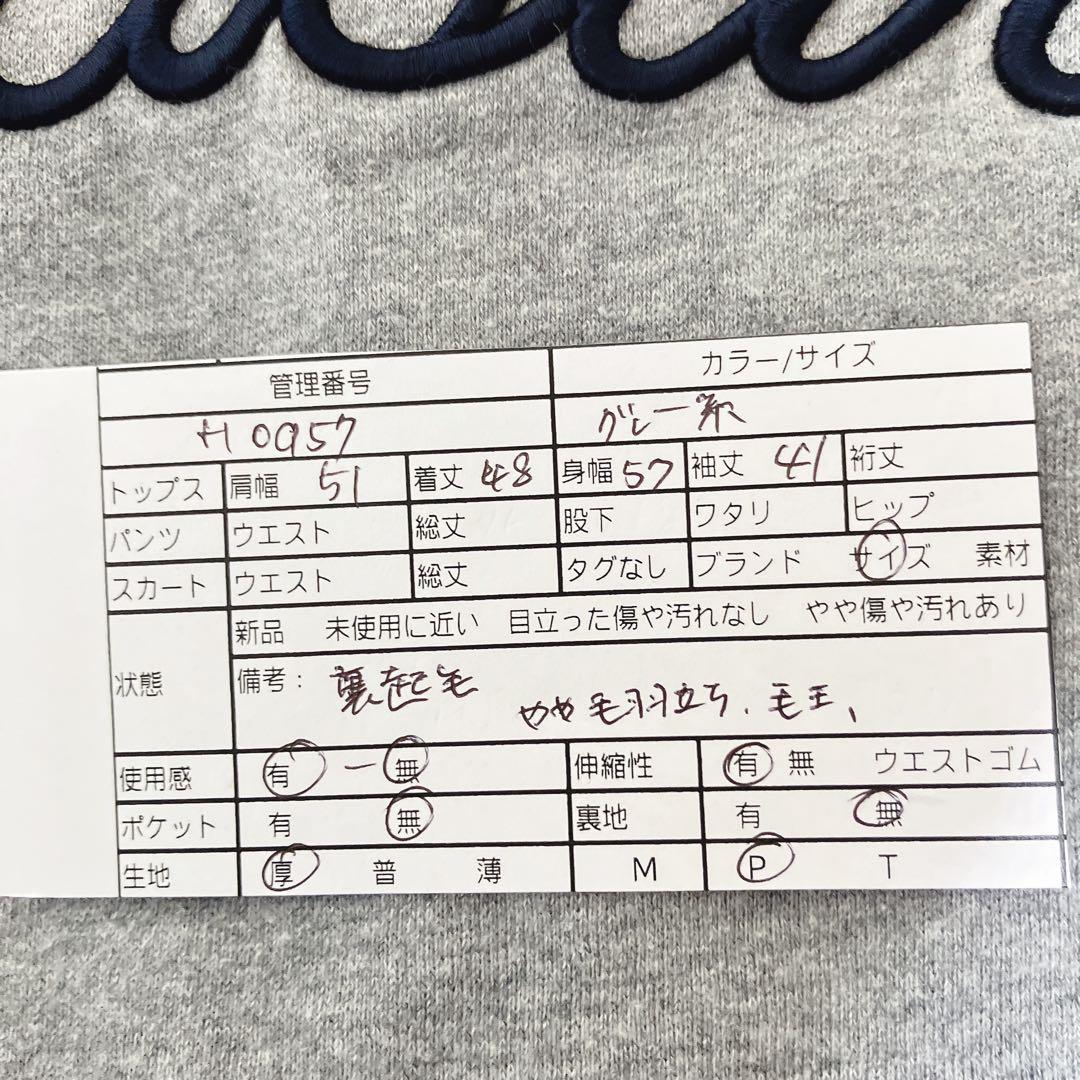 管理番号 カラー/サイズ
H0957 グレー系
トップス 肩幅 51 着丈 48 身幅 57 袖丈 41 裄丈
パンツ ウエスト 総丈 股下 ワタリ ヒップ
スカート ウエスト 総丈 タグなし ブランド サイズ 素材
状態 新品 未使用に近い 目立った傷や汚れなし やや傷や汚れあり
備考： 裏起毛
やや毛羽立ち、毛玉、
使用感 有 ー 無 伸縮性 有 無 ウエストゴム
ポケット 有 無 裏地 有 無
生地 厚 普 薄 M P T